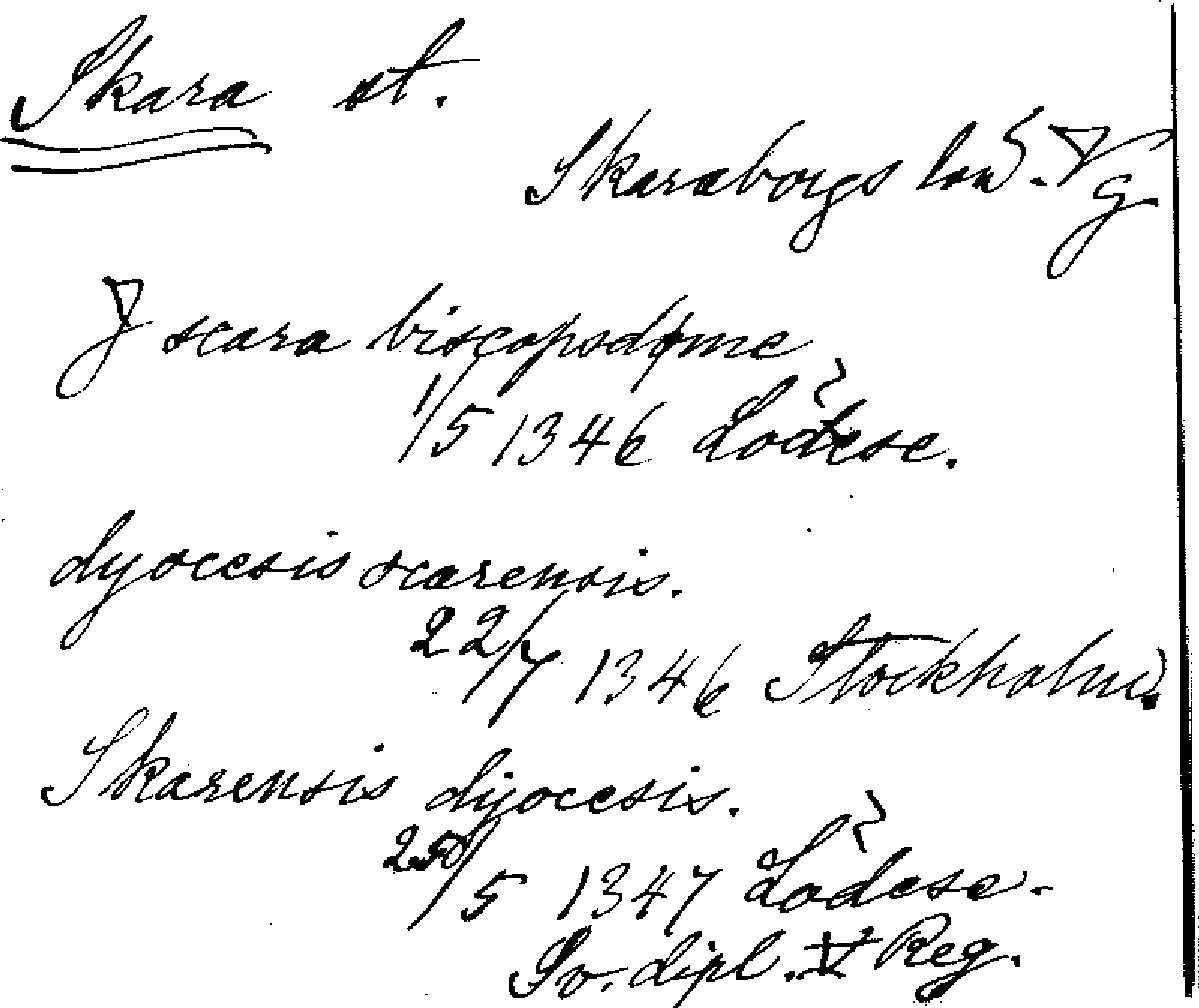 Skara st.
Skaraborgs län. Vg
J scara biscopsdøme
1/5 1346 Lödese.
dyocesis scarensis.
22/7 1346 Stockholm.
Skarensis dyocesis.
/5 1347 Lödese.
Sv. dipl. V Reg.